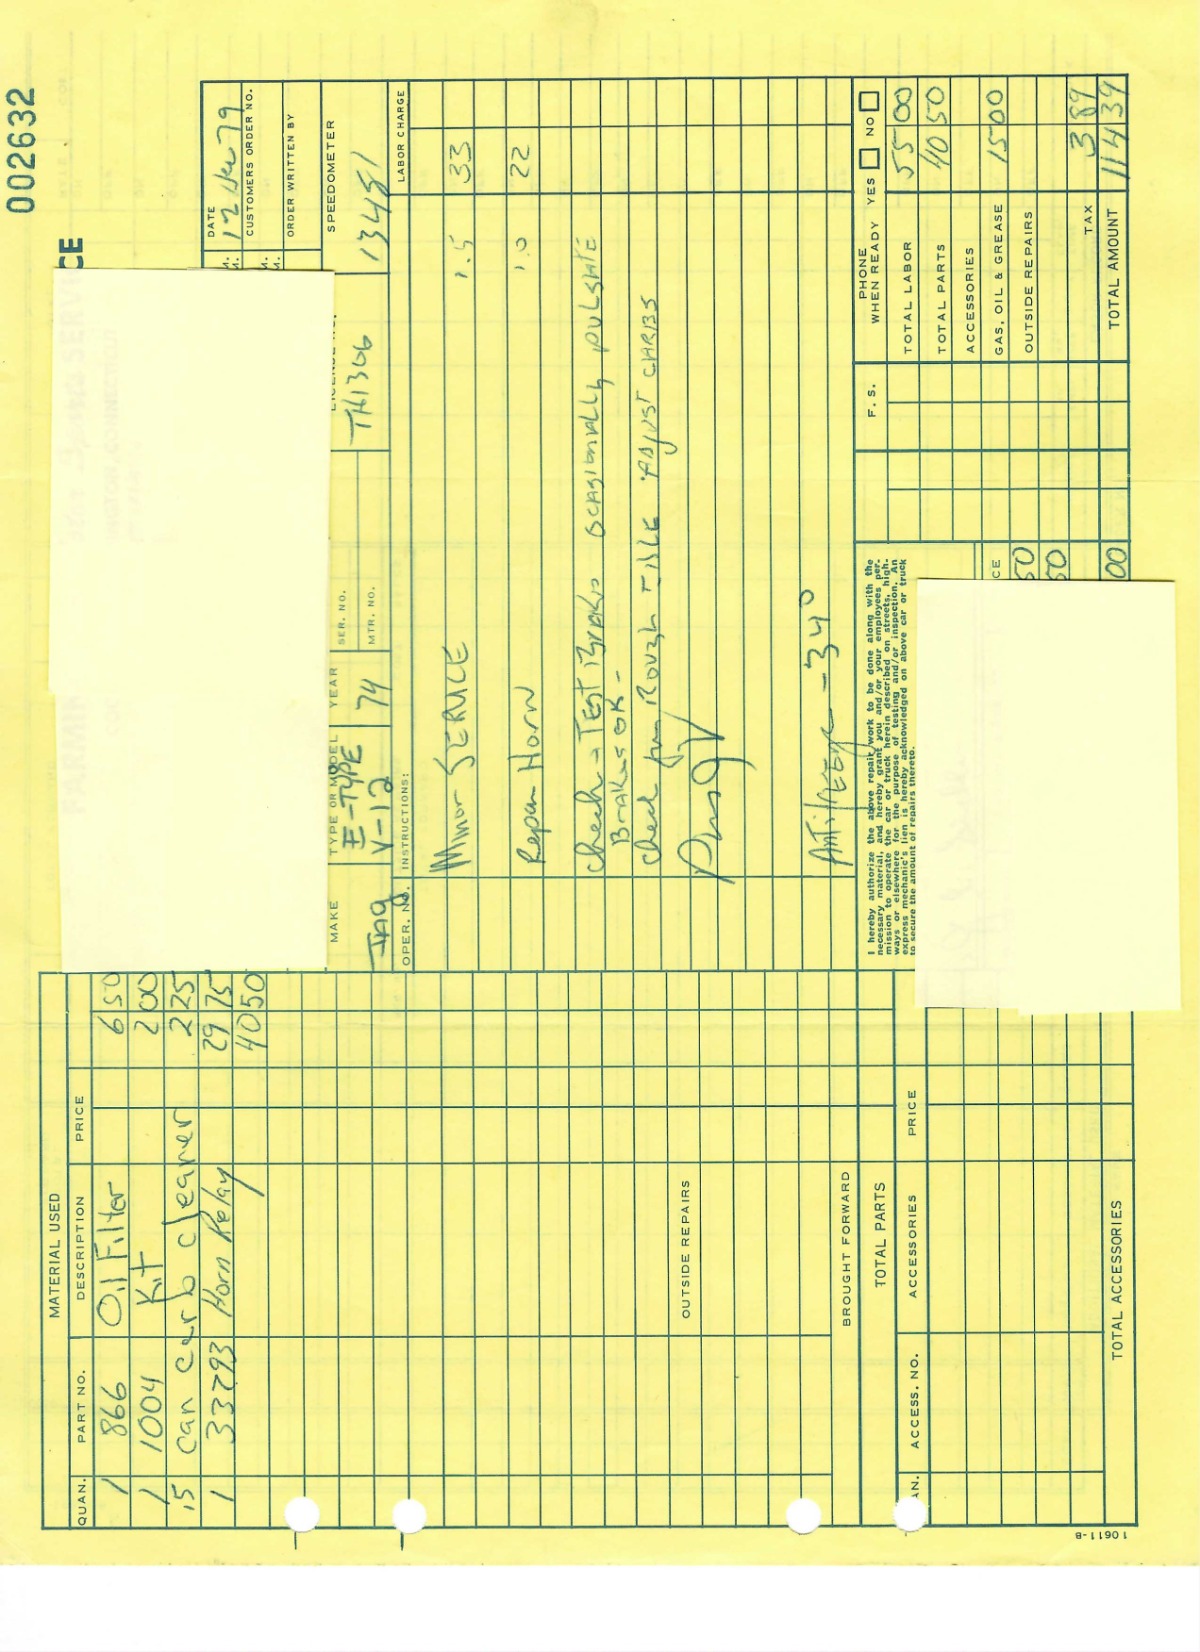 002632
CE
DATE
12 Nov 79
CUSTOMERS ORDER NO.
ORDER WRITTEN BY
MAKE
TYPE OR MODEL
YEAR
SER. NO.
MTR. NO.
SPEEDOMETER
Jag
E-TYPE
V-12
74
TH1306
13481
OPER. NO.
INSTRUCTIONS:
LABOR CHARGE
Minor SERVICE 1.5 33
Repair Horn 1.0 22
Check - TEST Brakes OCASIONALLY PULSATE
Brakes OK -
Check for Rough IDLE ADJUST CARBS
ANTIFREEZE -34°
I hereby authorize the above repair work to be done along with the
necessary material, and hereby grant you and/or your employees per-
mission to operate the car or truck herein described on streets, high-
ways or elsewhere for the purpose of testing and/or inspection. An
express mechanic's lien is hereby acknowledged on above car or truck
to secure the amount of repairs thereto.
CE
50
50
00
F. S.
PHONE
WHEN READY YES NO
TOTAL LABOR 55 00
TOTAL PARTS 40 50
ACCESSORIES
GAS, OIL & GREASE 15 00
OUTSIDE REPAIRS
TAX 3 89
TOTAL AMOUNT 114 39
MATERIAL USED
QUAN. PART NO. DESCRIPTION PRICE
1 866 Oil Filter 6 50
1 1004 Kit 2 00
.5 can carb cleaner 2 25
1 33293 Horn Relay 29 75
40 50
OUTSIDE REPAIRS
BROUGHT FORWARD
TOTAL PARTS
AN. ACCESS. NO. ACCESSORIES PRICE
TOTAL ACCESSORIES
10611-B